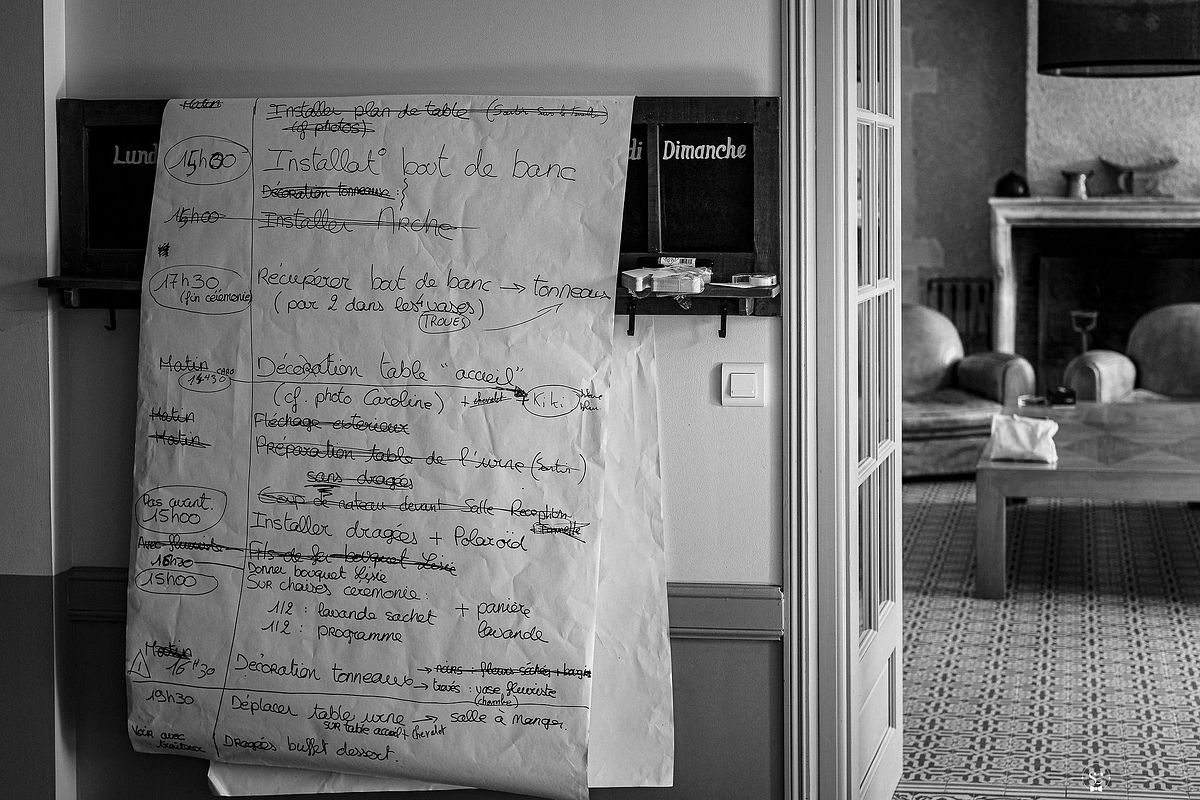 Matin Installer plan de table (Sortir sous le tivoli)
(cf photos)
Lund
15h00 Installat° bout de banc
di Dimanche
Décoration tonneaux :
15h00 Installer Arche
17h30 Récupérer bout de banc → tonneaux
(fin cérémonie) (par 2 dans les vases)
TROUÉS
Matin Décoration table "accueil"
CARO
14h30 (cf. photo Caroline) + chevalet + Kiki
bleu
Matin Fléchage exterieur
Matin Préparation table de l'urne (Sortir)
sans dragées
Coup de rateau devant Salle Reception
Pas avant
15h00 Installer dragées + Polaroïd
Avec fleuriste Fils de fer bouquet Lisie
16h30 Donner bouquet Lisie
15h00 SUR chaises ceremonie :
1/2 : lavande sachet + panière
1/2 : programme lavande
Matin
16h30 Décoration tonneaux → : fleurs séchées +
→ troués : vase fleuriste
(chambre)
19h30 Déplacer table urne → salle à manger.
SUR table accueil + chevalet
Voir avec
traiteur Dragées buffet dessert.